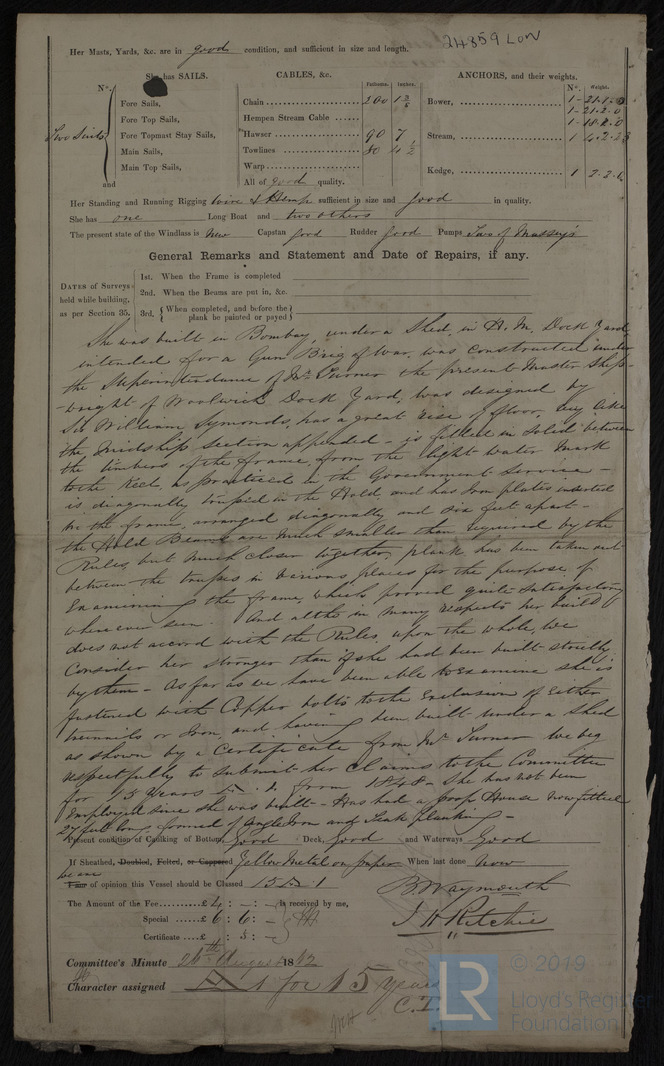 24859 LON
Her Masts, Yards, &c. are in good condition, and sufficient in size and length.
She has SAILS.
CABLES, &c.
Fathoms. Inches.
ANCHORS, and their weights.
No. Weight.
No.
Fore Sails,
Fore Top Sails,
Two suits
Fore Topmast Stay Sails,
Main Sails,
Main Top Sails,
and
Chain 200 1 3/8
Hempen Stream Cable
Hawser 90 7
Towlines 80 4 1/2
Warp
All of good quality.
Bower, 1 - 21.1.
1 - 21.2.0
1 - 18.2.0
Stream, 1 4.2.23
Kedge, 1 2.2.
Her Standing and Running Rigging Wire & Hemp sufficient in size and good in quality.
She has one Long Boat and two others
The present state of the Windlass is New Capstan good Rudder Good Pumps Two of Massey's
General Remarks and Statement and Date of Repairs, if any.
DATES of Surveys held while building, as per Section 35.
1st. When the Frame is completed
2nd. When the Beams are put in, &c.
3rd. {When completed, and before the plank be painted or payed}
She was built in Bombay, under a Shed, in H. M. Dock Yard,
intended for a Gun Brig of War, was constructed under
the Superintendance of Mr. Turner the present Master Ship-
-wright of Woolwich Dock Yard, was designed by
Sir William Symonds, has a great rise of floor, very like
the Midship section appended - is filled in solid between
the timbers of the frame from the light water Mark
to the Keel, as practiced in the Government Service -
is diagonally trussed in the Hold, and has Iron plates inserted
in the frame, arranged diagonally and six feet apart -
the Hold Beams are much smaller than required by the
Rules, but much closer together, plank has been taken out
between the trusses in various places for the purpose of
Examining the frame, which proved quite satisfactory
wherever seen. And altho in many respects her build
does not accord with the Rules, upon the whole, we
Consider her stronger than if she had been built strictly
by them - As far as we have been able to Examine she is
fastened with Copper bolts to the Exclusion of Either
treenails or Iron, and having been built under a Shed
as shown by a Certificate from Mr. Turner we beg
respectfully to submit her Claims to the Committee
for 15 Years from 1848 - She has not been
Employed since she was built - Has had a poop House now fitted
27 feet long, formed of Angle Iron and Teak planking -
Present condition of Caulking of Bottom, Good Deck, Good and Waterways Good
If Sheathed, Doubled, Felted, or Coppered Yellow Metal on paper When last done Now
We are
I am of opinion this Vessel should be Classed 15 A 1
B Waymouth
J H Ritchie
The Amount of the Fee £4 : - : - is received by me,
Special £6 : 6 : -
Certificate £ : 5 : -
Committee's Minute 26th August 1862
Character assigned A 1 for 15 years
C.T.
LR
© 2019
Lloyd's Register
Foundation